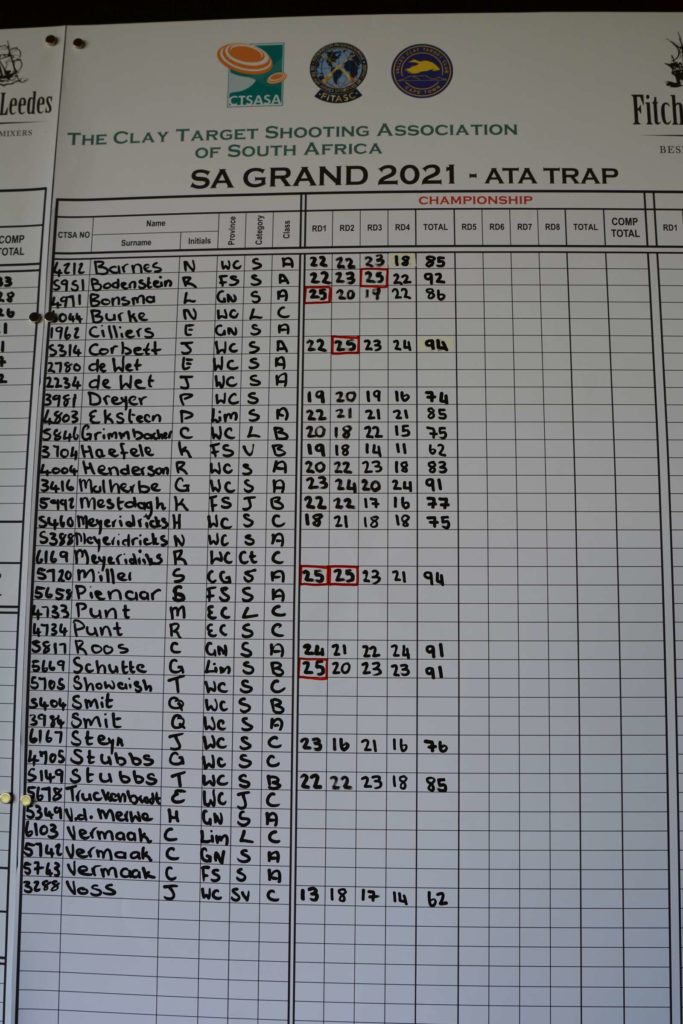 Leedes
MIXERS
CTSASA
FITASC
CAPE TOWN
Fitch
BES
THE CLAY TARGET SHOOTING ASSOCIATION
OF SOUTH AFRICA
SA GRAND 2021 - ATA TRAP
CHAMPIONSHIP
COMP TOTAL CTSA NO Name Surname Initials Province Category Class RD1 RD2 RD3 RD4 TOTAL RD5 RD6 RD7 RD8 TOTAL COMP TOTAL RD1
4212 Barnes N WC S A 22 22 23 18 85
5951 Bodenstein R FS S A 22 23 25 22 92
4971 Bonsma L GN S A 25 20 19 22 86
Burke N WC L C
1962 Cilliers E GN S A
5314 Corbett J WC S A 22 25 23 24 94
2780 de Wet E WC S A
2234 de Wet J WC S A
3981 Dreyer P WC S 19 20 19 16 74
4803 Eksteen P Lim S A 22 21 21 21 85
5846 Grimnbacher C WC L B 20 18 22 15 75
3704 Haefele K FS V B 19 18 14 11 62
4004 Henderson R WC S A 20 22 23 18 83
3416 Malherbe G WC S A 23 24 20 24 91
5992 Mestdagh K FS J B 22 22 17 16 77
5460 Meyeridricks H WC S C 18 21 18 18 75
5388 Meyeridricks N WC S A
6169 Meyeridriks R WC Ct C
5720 Miller S CG S A 25 25 23 21 94
5658 Pienaar S FS S A
4733 Punt M EC L C
4734 Punt R EC S C
5817 Roos C GN S A 24 21 22 24 91
5669 Schutte G Lim S B 25 20 23 23 91
5705 Showeish T WC S C
5404 Smit Q WC S B
3984 Smit Q WC S A
6167 Steyn J WC S C 23 16 21 16 76
4705 Stubbs G WC S C
5149 Stubbs T WC S B 22 22 23 18 85
5678 E WC J C
5349 V.d. Merwe H GN S A
6103 Vermaak C Lim L C
5742 Vermaak C GN S A
5763 Vermaak C FS S A
3288 Voss J WC SV C 13 18 17 14 62